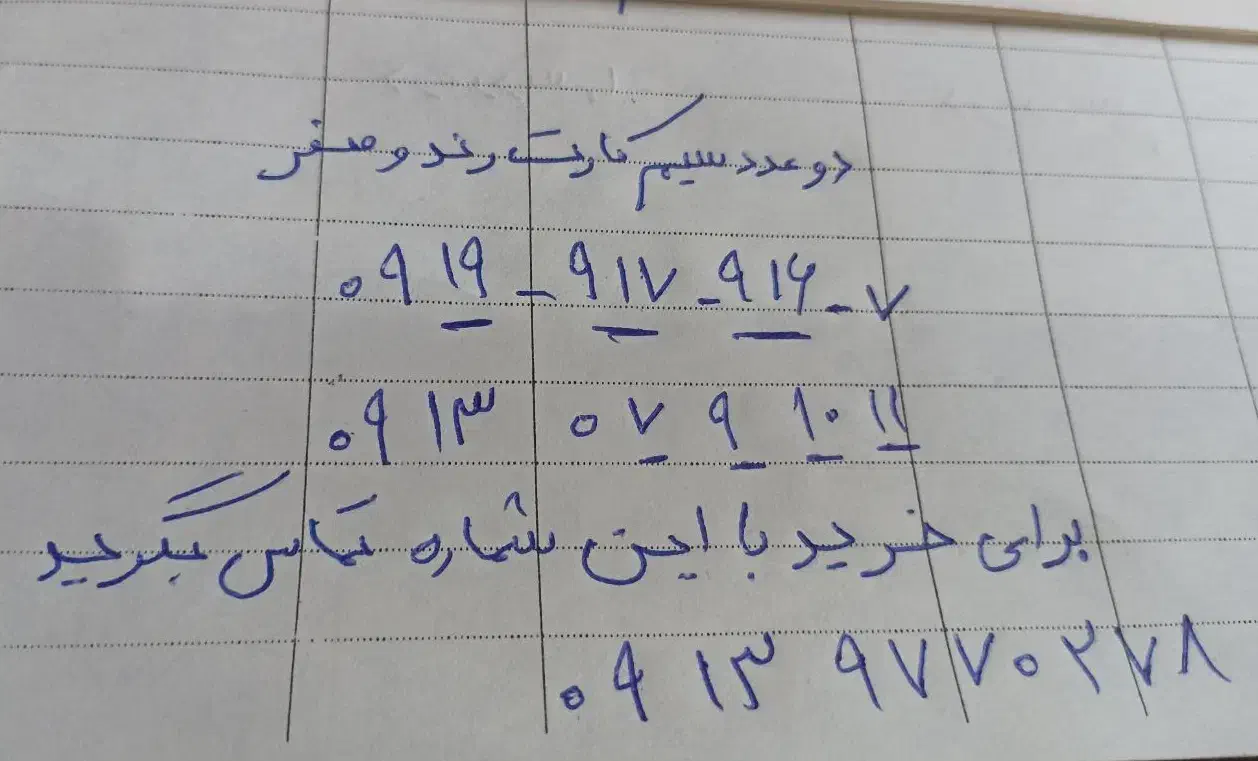 دو عدد سیم کارت رند و صفر
۰۹۱۹-۹۱۷-۹۱۶-۷
۰۹۱۳ ۰۷۹ ۱۰ ۱۱
برای خرید با این شماره تماس بگیرید
۰۹۱۳ ۹۷۷۰۲۷۸